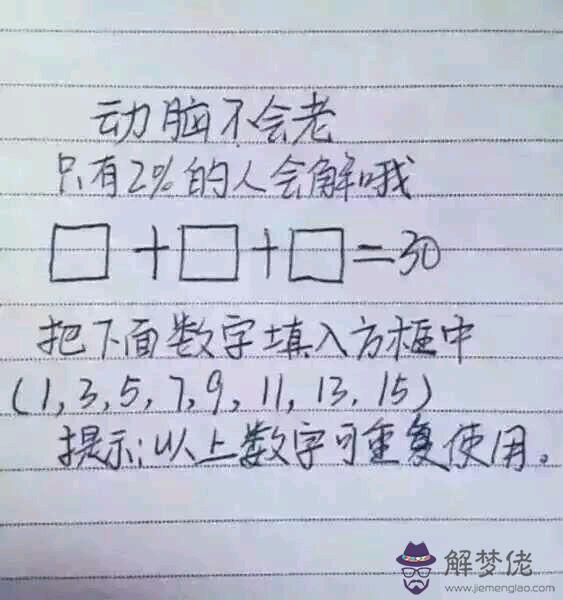 动脑不会老
只有2%的人会解哦
□+□+□=30
把下面数字填入方框中
(1,3,5,7,9,11,13.15)
提示:以上数字可重复使用。
解梦佬
www.jiemenglao.com